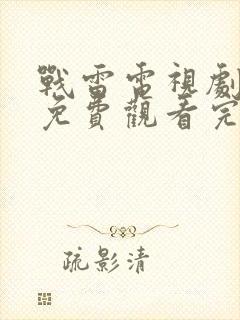 戰雷電視劇
免費觀看完
疏影清